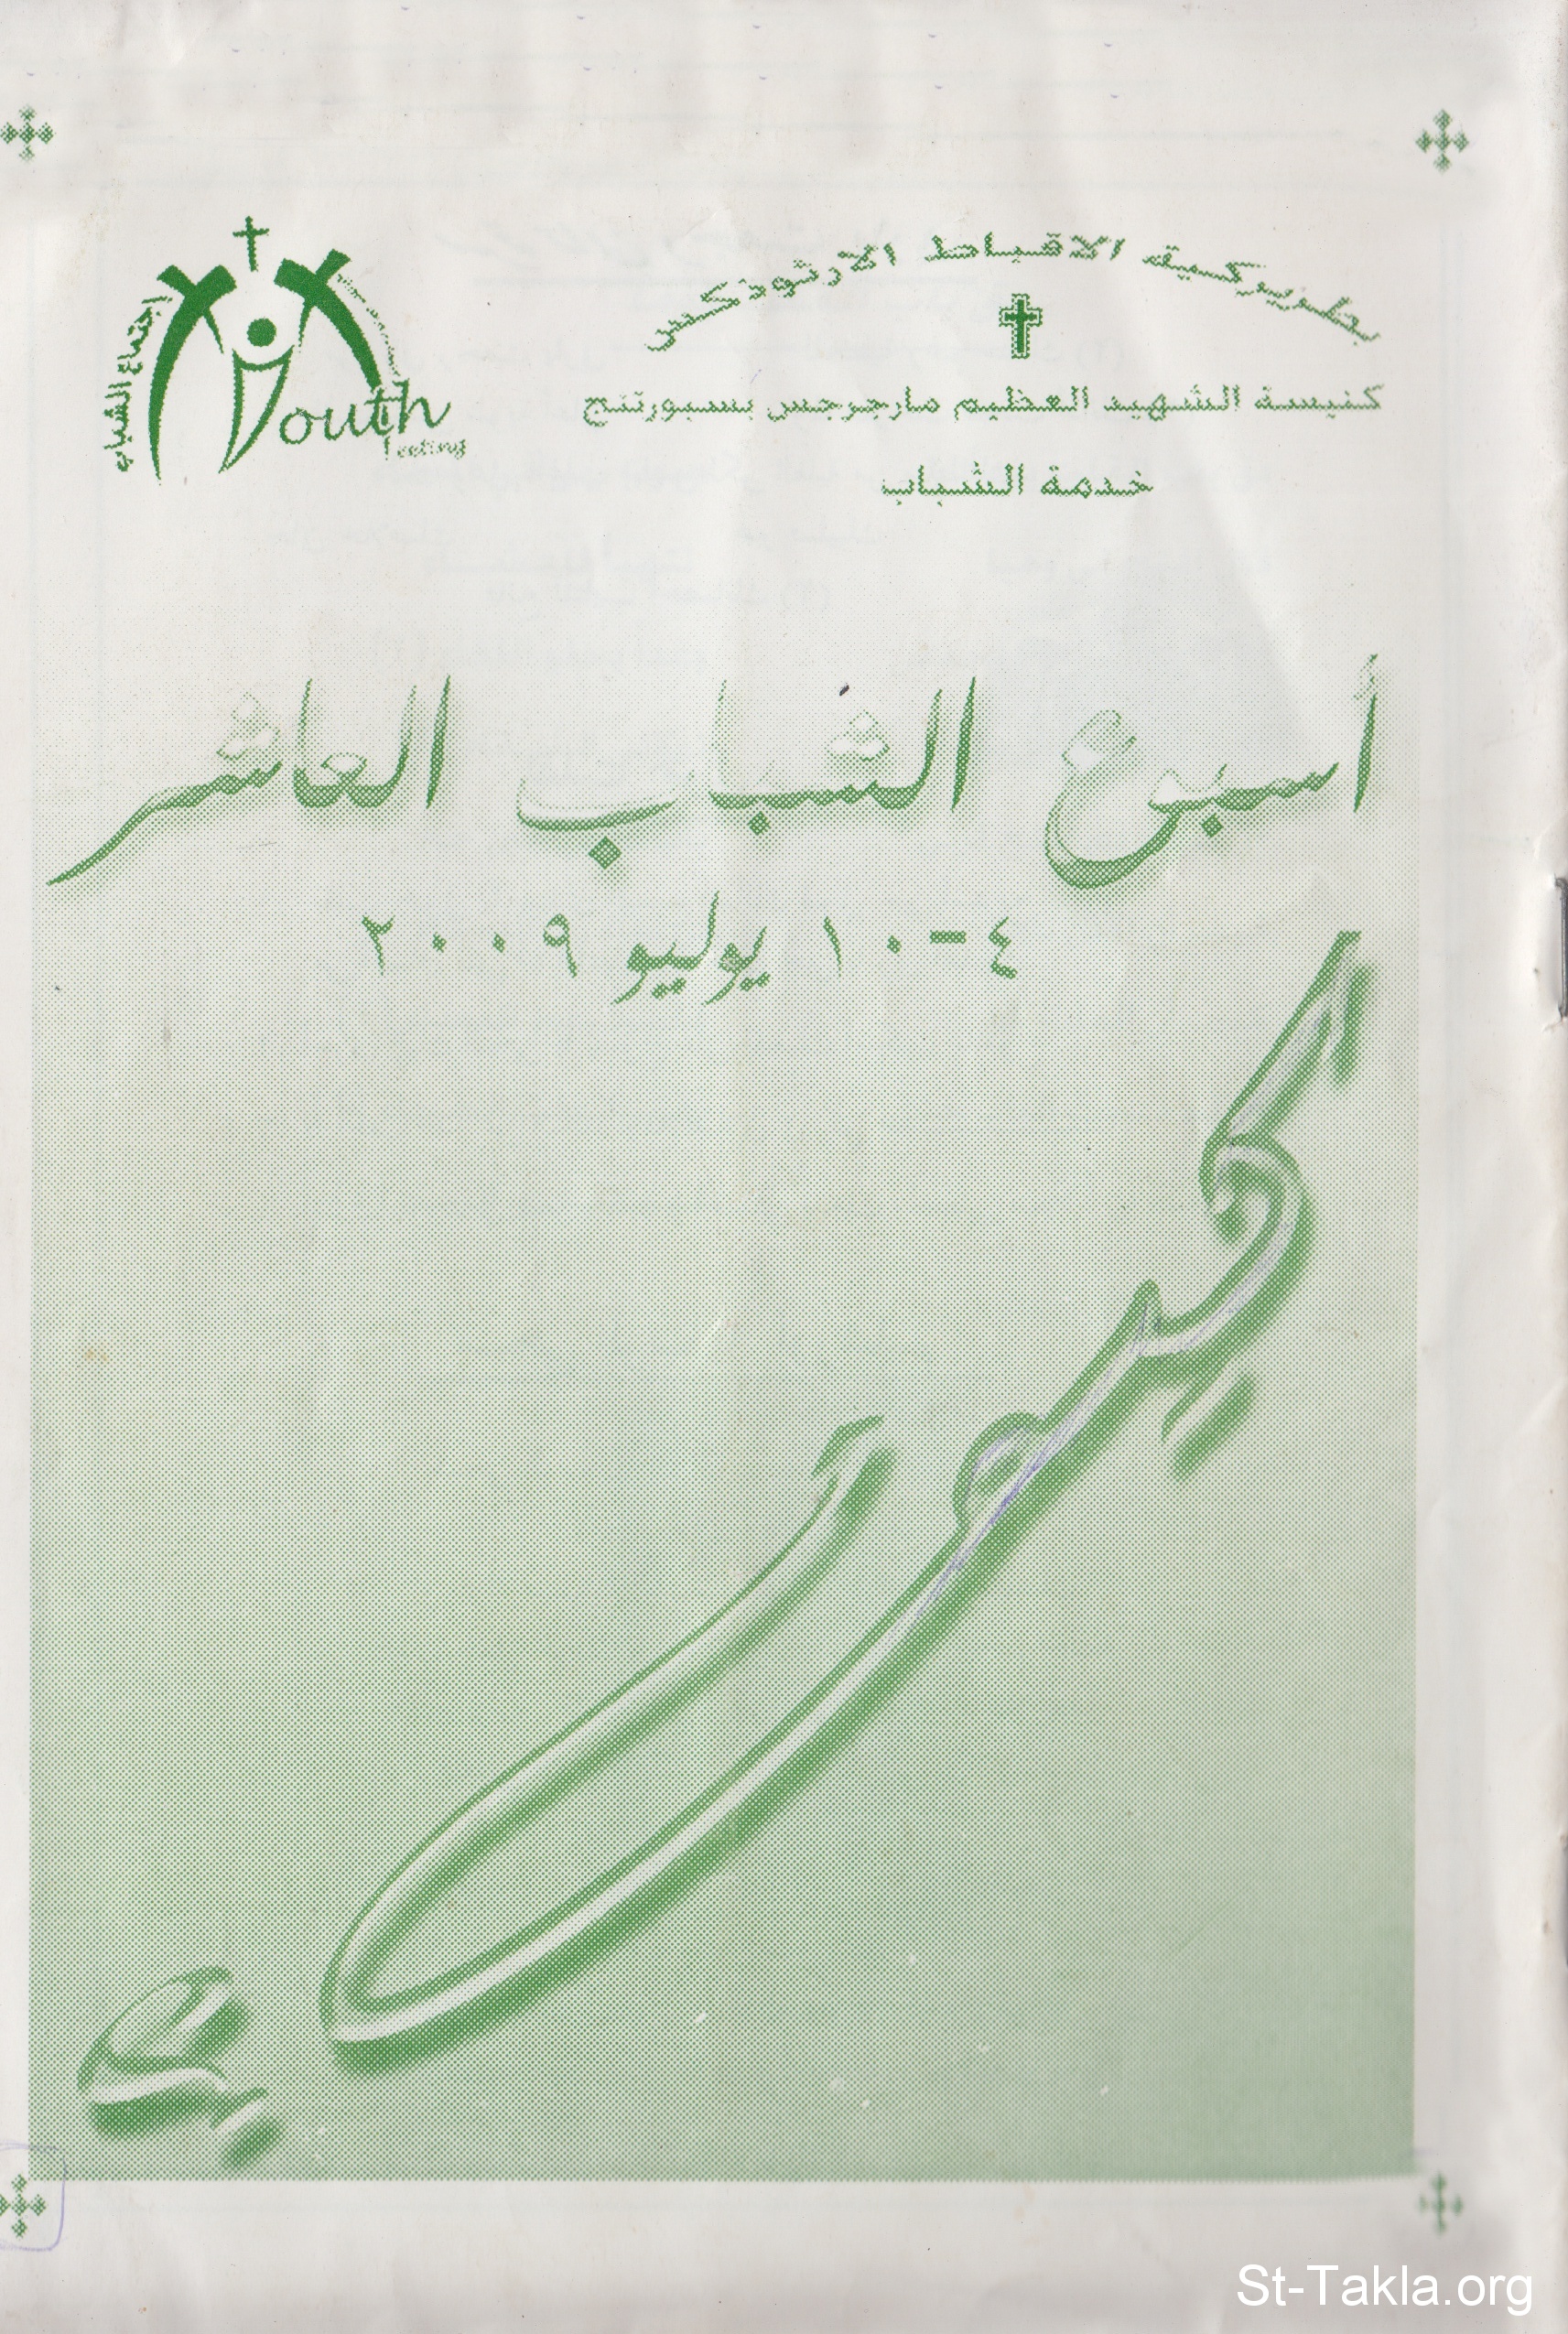 بطريركية الاقباط الارثوذكس
كنيسة الشهيد العظيم مارجرجس بسبورتنج
خدمة الشباب
اجتماع الشباب
Youth
Meeting
أسبوع الشباب العاشر
٤-١٠ يوليو ٢٠٠٩
St-Takla.org